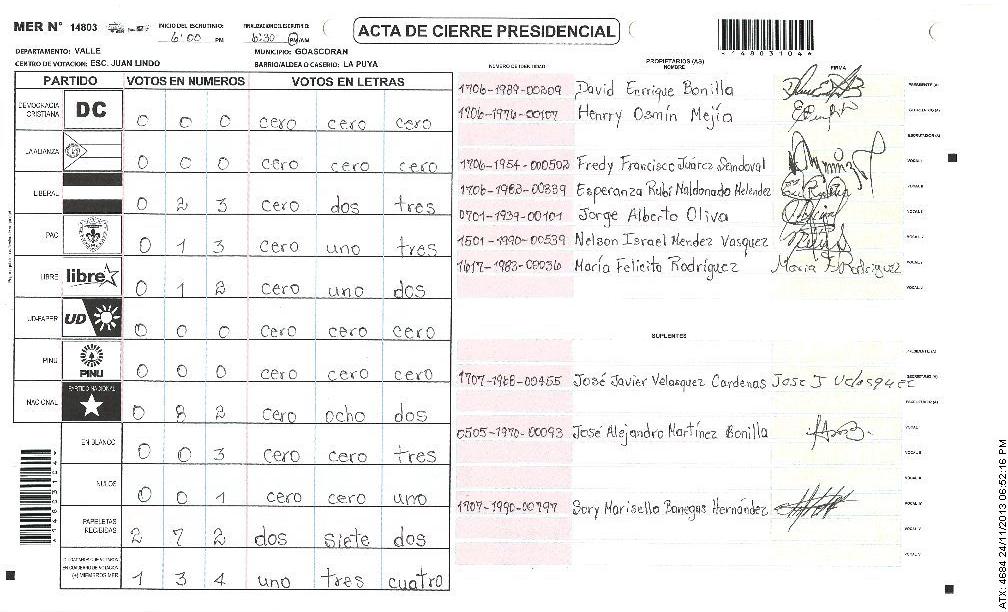 MER N° 14803
INICIO DEL ESCRUTINIO:
6:00 PM
FINALIZACION DEL ESCRUTINIO:
6:30 PM/AM
ACTA DE CIERRE PRESIDENCIAL
1 4 8 0 3 1 0 4
DEPARTAMENTO: VALLE
MUNICIPIO: GOASCORAN
CENTRO DE VOTACION: ESC. JUAN LINDO
BARRIO/ALDEA O CASERIO: LA PUYA
PARTIDO VOTOS EN NUMEROS VOTOS EN LETRAS
DEMOCRACIA CRISTIANA DC 0 0 0 cero cero cero
LA ALIANZA 0 0 0 cero cero cero
LIBERAL 0 2 3 cero dos tres
PAC 0 1 3 cero uno tres
LIBRE libre 0 1 2 cero uno dos
UD-FAPER UD 0 0 0 cero cero cero
PINU PINU 0 0 0 cero cero cero
NACIONAL PARTIDO NACIONAL 0 8 2 cero ocho dos
EN BLANCO 0 0 3 cero cero tres
NULOS 0 0 1 cero cero uno
PAPELETAS RECIBIDAS 2 7 2 dos siete dos
(+) MIEMBROS MER 1 3 4 uno tres cuatro
NUMERO DE IDENTIDAD
PROPIETARIOS (AS)
NOMBRE
FIRMA
1706-1989-00309 David Enrique Bonilla PRESIDENTE (A)
1706-1976-00107 Henrry Osmín Mejía SECRETARIO (A)
ESCRUTADOR (A)
1706-1954-000502 Fredy Francisco Juárez Sandoval VOCAL I
1706-1983-00339 Esperanza Rubí Maldonado Melendez VOCAL II
0701-1939-00101 Jorge Alberto Oliva
1501-1990-00539 Nelson Israel Mendez Vasquez
1617-1983-00036 María Felicito Rodríguez María F Rodriguez
SUPLENTES
PRESIDENTE (A)
1707-1988-00455 José Javier Velasquez Cardenas Jose J Velasquez SECRETARIO (A)
ESCRUTADOR (A)
0505-1970-00093 José Alejandro Martínez Bonilla VOCAL I
VOCAL II
1707-1990-00797 Sary Marisella Banegas Hernández
ATX: 4684 24/11/2013 06:52:16 PM